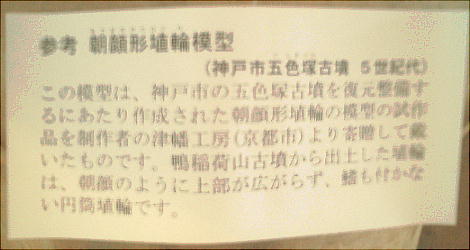 参考 朝顔形埴輪模型
(神戸市五色塚古墳 5世紀代)
この模型は、神戸市の五色塚古墳を復元整備す
るにあたり作成された朝顔形埴輪の模型の試作
品を制作者の津幡工房(京都市)より寄贈して戴
いたものです。鴨稲荷山古墳から出土した埴輪
は、朝顔のように上部が広がらず、鰭も付かな
い円筒埴輪です。